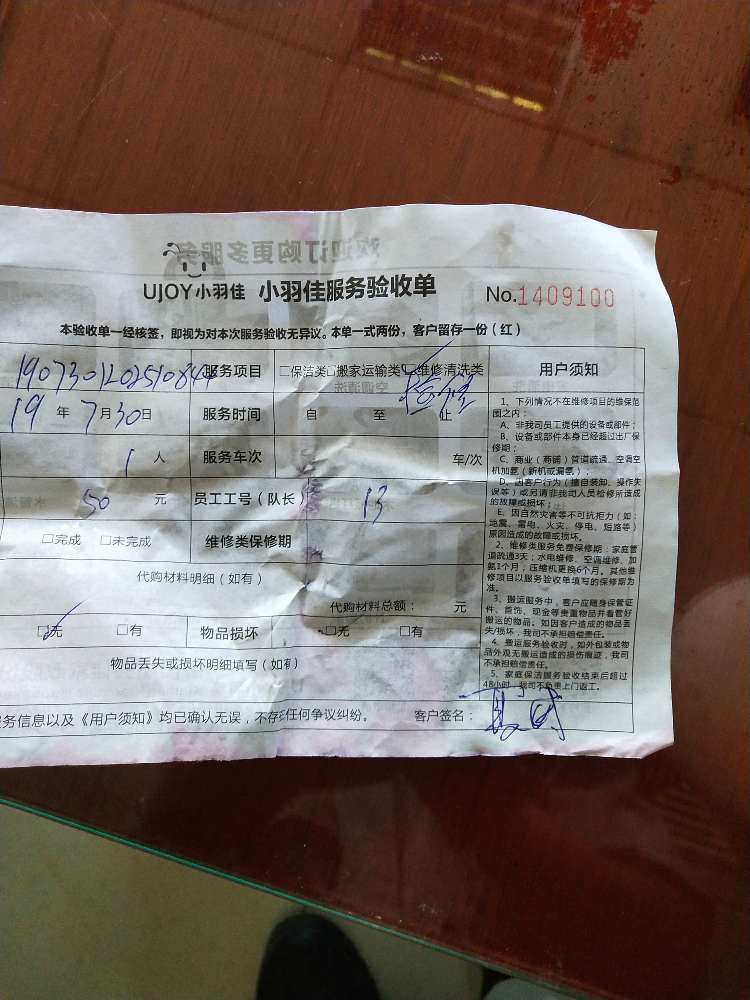 欢迎订购更多服务
UJOY小羽佳 小羽佳服务验收单 No.1409100
本验收单一经核签，即视为对本次服务验收无异议。本单一式两份，客户留存一份（红）
190730120251084 服务项目 □保洁类□搬家运输类□维修清洗类 用户须知
检修
19 年 7月30日 服务时间 自 至 止
1 人 服务车次 车/次
50 元 员工工号（队长） 13
□完成 □未完成 维修类保修期
代购材料明细（如有）
代购材料总额： 元
□无 □有 物品损坏 □无 □有
物品丢失或损坏明细填写（如有）
务信息以及《用户须知》均已确认无误，不存在任何争议纠纷。 客户签名：
1、下列情况不在维修项目的维保范
围之内：
A、非我司员工提供的设备或部件；
B、设备或部件本身已经超过出厂保
修期；
C、商业（商铺）管道疏通、空调空
机加氨（新机或漏氨）；
D、因客户行为（擅自装卸、操作失
误等）或另请非我司人员检修所造成
的故障或损坏；
E、因自然灾害等不可抗拒力（如：
地震、雷电、火灾、停电、短路等）
原因造成的故障或损坏。
2、维修类服务免费保修期：家庭管
道疏通3天；水电维修、空调维修、加
氨1个月；压缩机更换6个月。其他维
修项目以服务验收单填写的保修期为
准。
3、搬运服务中，客户应随身保管证
件、首饰、现金等贵重物品并看管好
搬运的物品。如因客户造成的物品丢
失/损坏，我司不承担赔偿责任。
4、搬运服务验收时，如外包装或物
品外观无搬运造成的损伤痕迹，我司
不承担赔偿责任。
5、家庭保洁服务验收结束后超过
48小时，我司不负责上门返工。